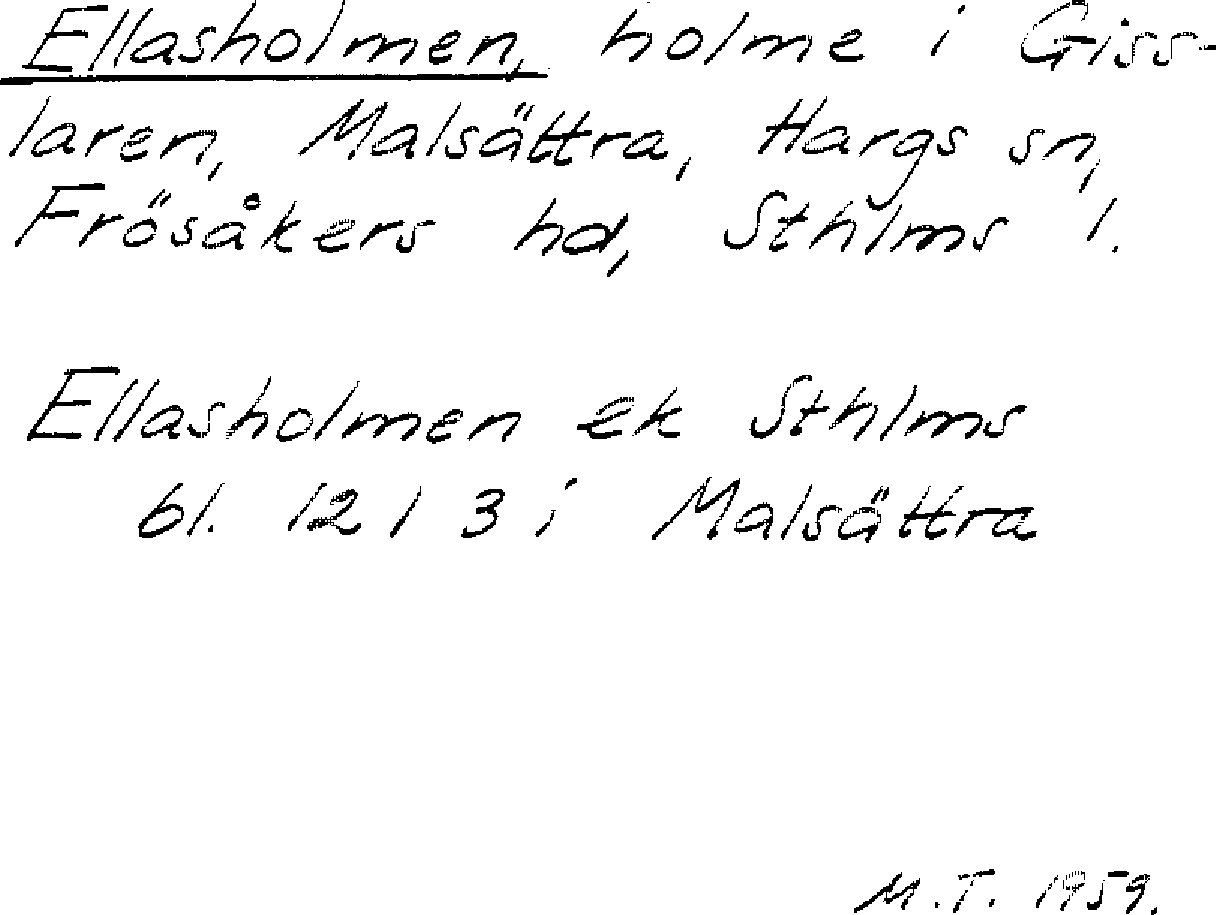 Ellasholmen, holme i Giss-
laren, Malsättra, Hargs sn,
Frösåkers hd, Sthlms l.
Ellasholmen ek Sthlms
bl. 12 I 3 i Malsättra
M.T. 1959.